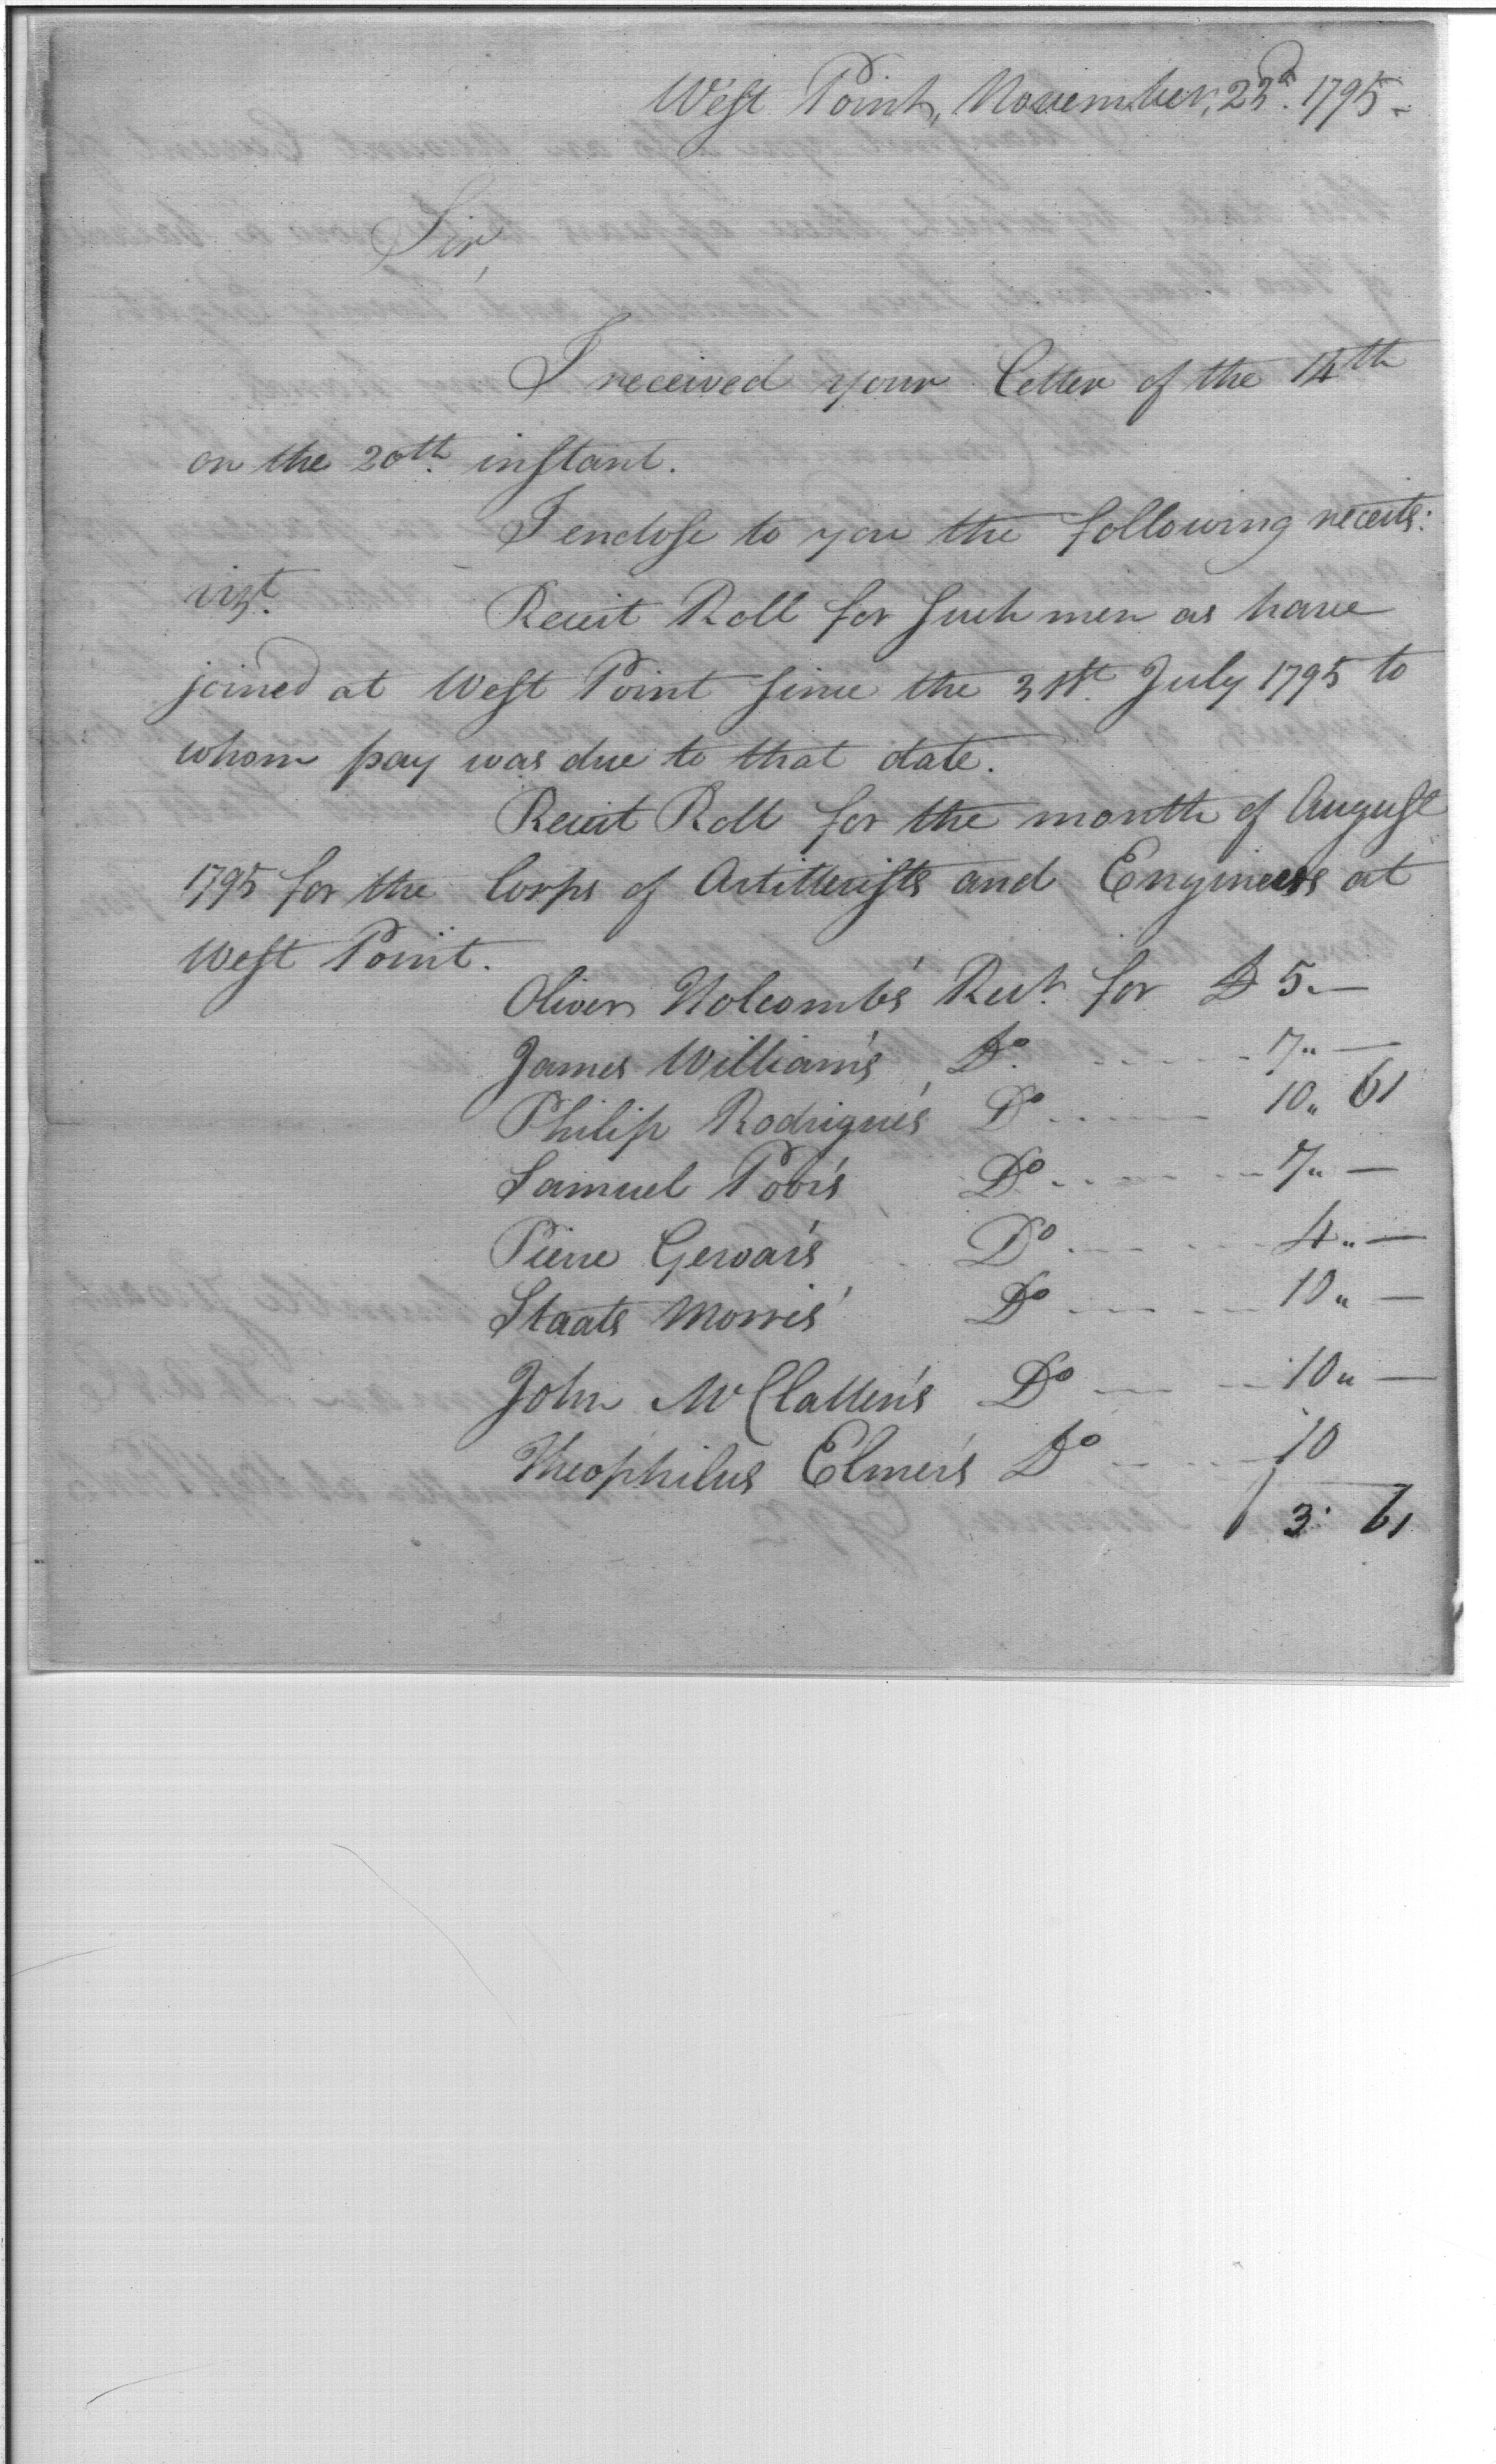 West Point, November, 23d. 1795-
Sir,
I received your Letter of the 14th
on the 20th. instant.
I enclose to you the following receits:
vizt.
Receit Roll for such men as have
joined at West Point since the 31st. July 1795 to
whom pay was due to that date.
Receit Roll for the month of August
1795 for the Corps of Artillerists and Engineers at
West Point.
Oliver Holcomb's Rect. for D 5.—
James William's Do. 7„ —
Philip Rodrigue's Do 10„ 61
Samuel Pobi's Do 7„ —
Pierre Gervais Do 4„ —
Staats Morris' Do 10„ —
John McClallen's Do 10„ —
Theophilus Elmer's Do 10
3. 61